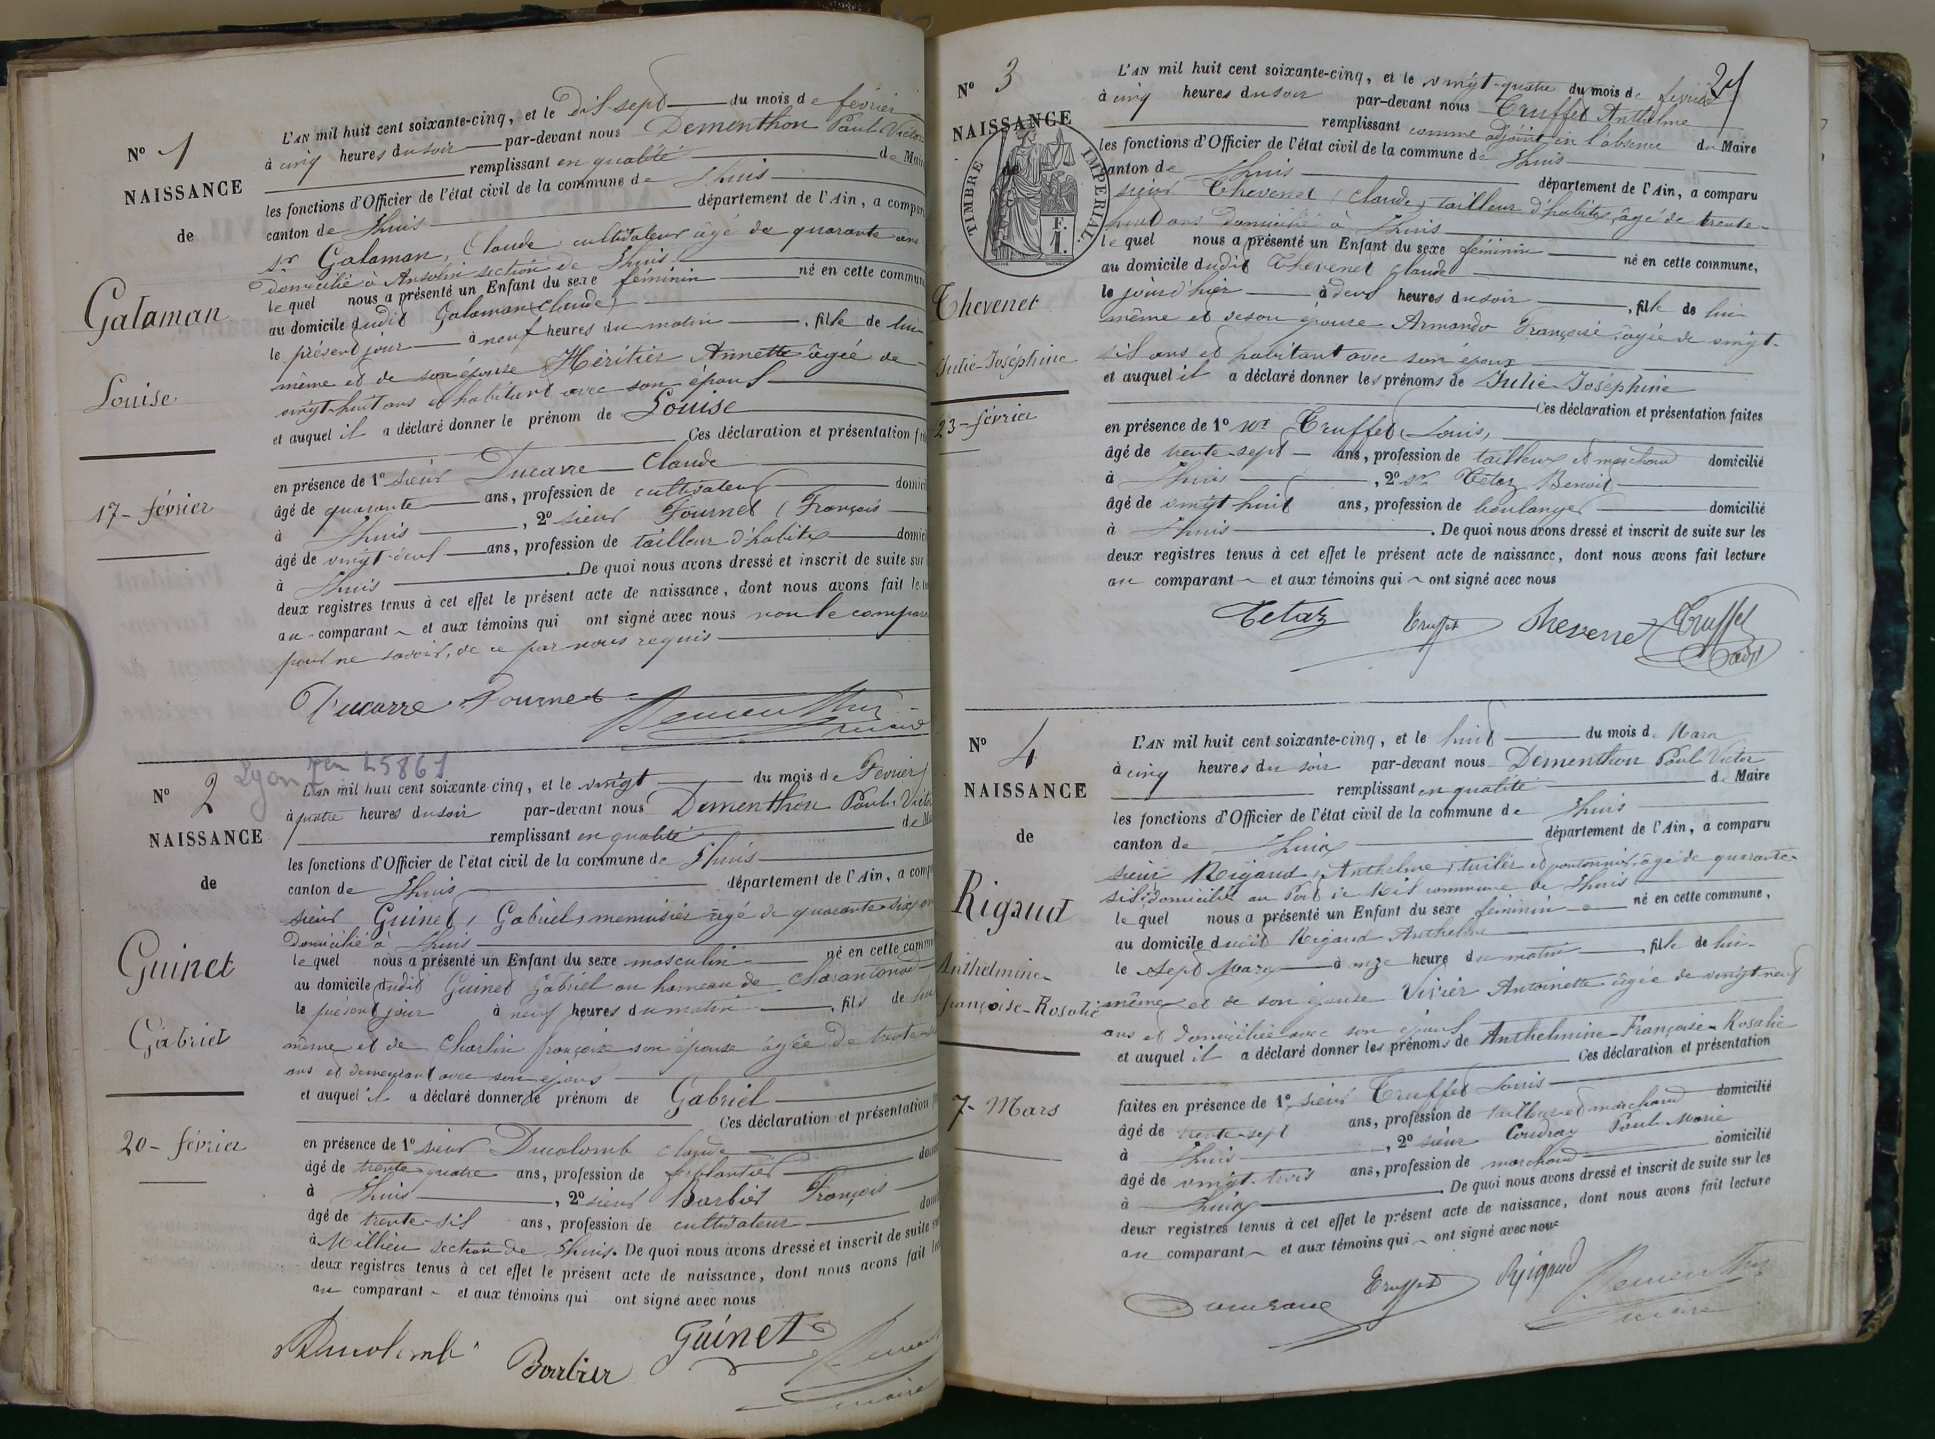 N° 1
NAISSANCE
de
Galaman
Louise
17 - février
L'AN mil huit cent soixante-cinq, et le Dix-sept du mois de février
à cinq heures du soir par-devant nous Dementhon Paul-Victor
remplissant en qualité de Maire
les fonctions d'Officier de l'état civil de la commune de Lhuis
canton de Lhuis département de l'Ain, a comparu
sr Galaman, Claude, cultivateur âgé de quarante ans
domicilié à Ansolin section de Lhuis
lequel nous a présenté un Enfant du sexe féminin né en cette commune
au domicile dudit Galaman Claude
le présent jour à neuf heures du matin, fille de lui
même et de son épouse Héritier Annette âgée de
vingt-huit ans et habitant avec son époux
et auquel il a déclaré donner le prénom de Louise
Ces déclaration et présentation
en présence de 1° sieur Ducarre Claude
âgé de quarante ans, profession de cultivateur
à Lhuis, 2° sieur Fournet, François
âgé de vingt-deux ans, profession de tailleur d'habits
à Lhuis. De quoi nous avons dressé et inscrit de suite sur
deux registres tenus à cet effet le présent acte de naissance, dont nous avons fait
au comparant et aux témoins qui ont signé avec nous non le comparant
pour ne savoir, de ce par nous requis
Ducarre Fournet Dementhon
maire
N° 2
NAISSANCE
de
Guinet
Gabriel
20 - février
L'AN mil huit cent soixante-cinq, et le vingt du mois de Février
à quatre heures du soir par-devant nous Dementhon Paul-Victor
remplissant en qualité de
les fonctions d'Officier de l'état civil de la commune de Lhuis
canton de Lhuis département de l'Ain, a
sieur Guinet, Gabriel, menuisier âgé de quarante-dix ans
domicilié à Lhuis
lequel nous a présenté un Enfant du sexe masculin né en cette
au domicile dudit Guinet Gabriel au hameau de
le présent jour à neuf heures du matin, fils de lui
même et de Charlin françoise son épouse âgée de trente
ans et demeurant avec son époux
et auquel il a déclaré donner le prénom de Gabriel
Ces déclaration et présentation
en présence de 1° sieur Ducolomb Claude
âgé de trente quatre ans, profession de ferblantier
à Lhuis, 2° sieur Barbier François
âgé de trente-six ans, profession de cultivateur
à Millieu section de Lhuis. De quoi nous avons dressé et inscrit de suite
deux registres tenus à cet effet le présent acte de naissance, dont nous avons fait
au comparant et aux témoins qui ont signé avec nous
Ducolomb Barbier Guinet
maire
24
N° 3
NAISSANCE
de
TIMBRE IMPERIAL
F. 1.
Thevenet
Julie Joséphine
23 - février
L'AN mil huit cent soixante-cinq, et le vingt-quatre du mois de février
à cinq heures du soir par-devant nous Truffet Anthelme
remplissant comme adjoint en l'absence du Maire
les fonctions d'Officier de l'état civil de la commune de Lhuis
canton de Lhuis département de l'Ain, a comparu
sieur Thevenet, Claude, tailleur d'habits, âgé de trente-
huit ans domicilié à Lhuis
lequel nous a présenté un Enfant du sexe féminin né en cette commune,
au domicile dudit Thevenet Claude
le jour d'hier à deux heures du soir, fille de lui
même et de son épouse Armando Françoise, âgée de vingt-
six ans et habitant avec son époux
et auquel il a déclaré donner les prénoms de Julie-Joséphine
Ces déclaration et présentation faites
en présence de 1° sr Truffet, Louis,
âgé de trente-sept ans, profession de tailleur et marchand domicilié
à Lhuis, 2° sr Tetaz Benoit
âgé de vingt huit ans, profession de boulanger domicilié
à Lhuis. De quoi nous avons dressé et inscrit de suite sur les
deux registres tenus à cet effet le présent acte de naissance, dont nous avons fait lecture
au comparant et aux témoins qui ont signé avec nous
Tetaz Truffet Thevenet Truffet
adjt
N° 4
NAISSANCE
de
Rigaud
Anthelmine-
françoise-Rosalie
7 - Mars
L'AN mil huit cent soixante-cinq, et le huit du mois de Mars
à cinq heures du soir par-devant nous Dementhon Paul Victor
remplissant en qualité de Maire
les fonctions d'Officier de l'état civil de la commune de Lhuis
canton de Lhuis département de l'Ain, a comparu
sieur Rigaud, Anthelme, tuilier et pontonnier, âgé de quarante-
six, domicilié au Port de commune de Lhuis
lequel nous a présenté un Enfant du sexe féminin né en cette commune,
au domicile dudit Rigaud Anthelme
le sept Mars à onze heure du matin, fille de lui-
même et de son épouse Vivier Antoinette âgée de vingt neuf
ans et domiciliée avec son époux
et auquel il a déclaré donner les prénoms de Anthelmine-Françoise-Rosalie
Ces déclaration et présentation
faites en présence de 1° sieur Truffet Louis
âgé de trente-sept ans, profession de tailleur et marchand domicilié
à Lhuis, 2° sieur Coudray Paul Marie
âgé de vingt-trois ans, profession de marchand domicilié
à Lhuis. De quoi nous avons dressé et inscrit de suite sur les
deux registres tenus à cet effet le présent acte de naissance, dont nous avons fait lecture
au comparant et aux témoins qui ont signé avec nous
Truffet Rigaud Dementhon
maire